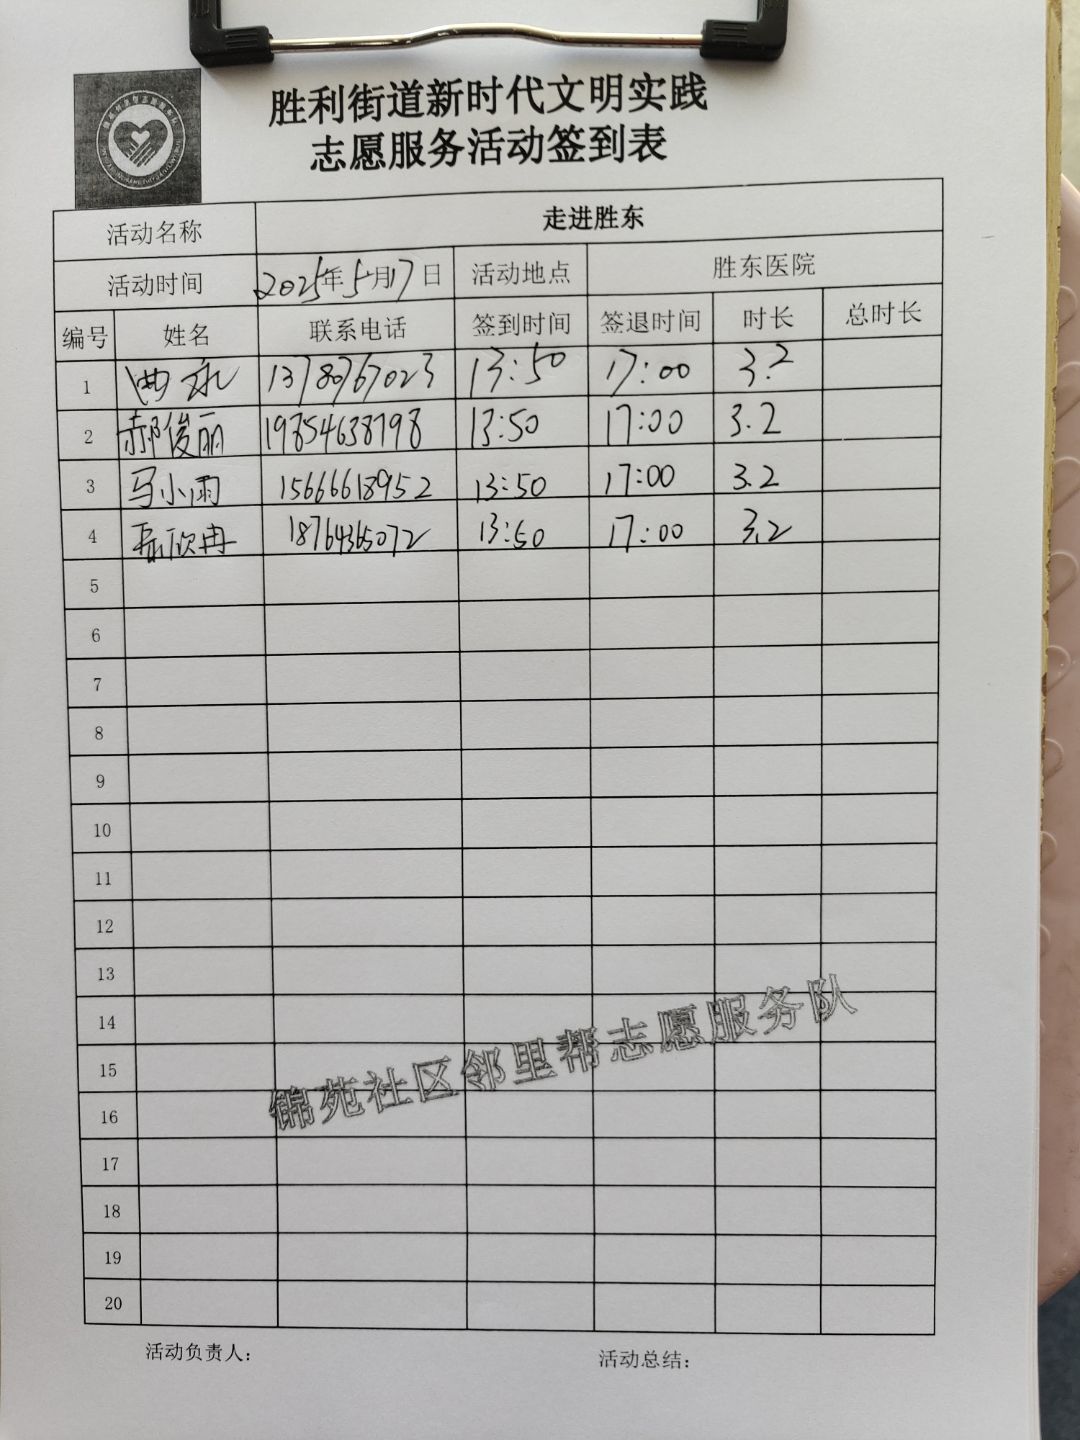 胜利街道新时代文明实践
志愿服务活动签到表
活动名称 走进胜东
活动时间 2025年5月17日 活动地点 胜东医院
编号 姓名 联系电话 签到时间 签退时间 时长 总时长
1 13780767023 13:50 17:00 3.2
2 郝俊丽 19854638798 13:50 17:00 3.2
3 马小雨 15666618952 13:50 17:00 3.2
4 欣冉 18764365072 13:50 17:00 3.2
5
6
7
8
9
10
11
12
13
14
15
16
17
18
19
20
锦苑社区邻里帮志愿服务队
活动负责人: 活动总结: